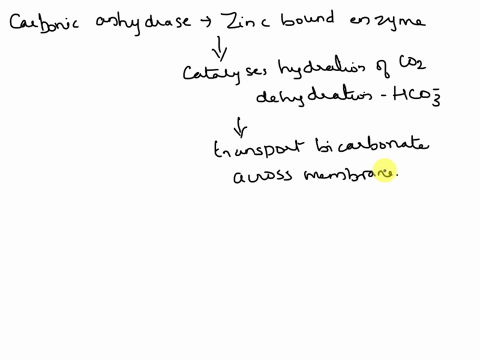 Carbonic anhydrase → Zinc bound enzyme
↓
Catalyses hydration of CO2
dehydration - HCO3-
↓
transport bicarbonate
across membrane.